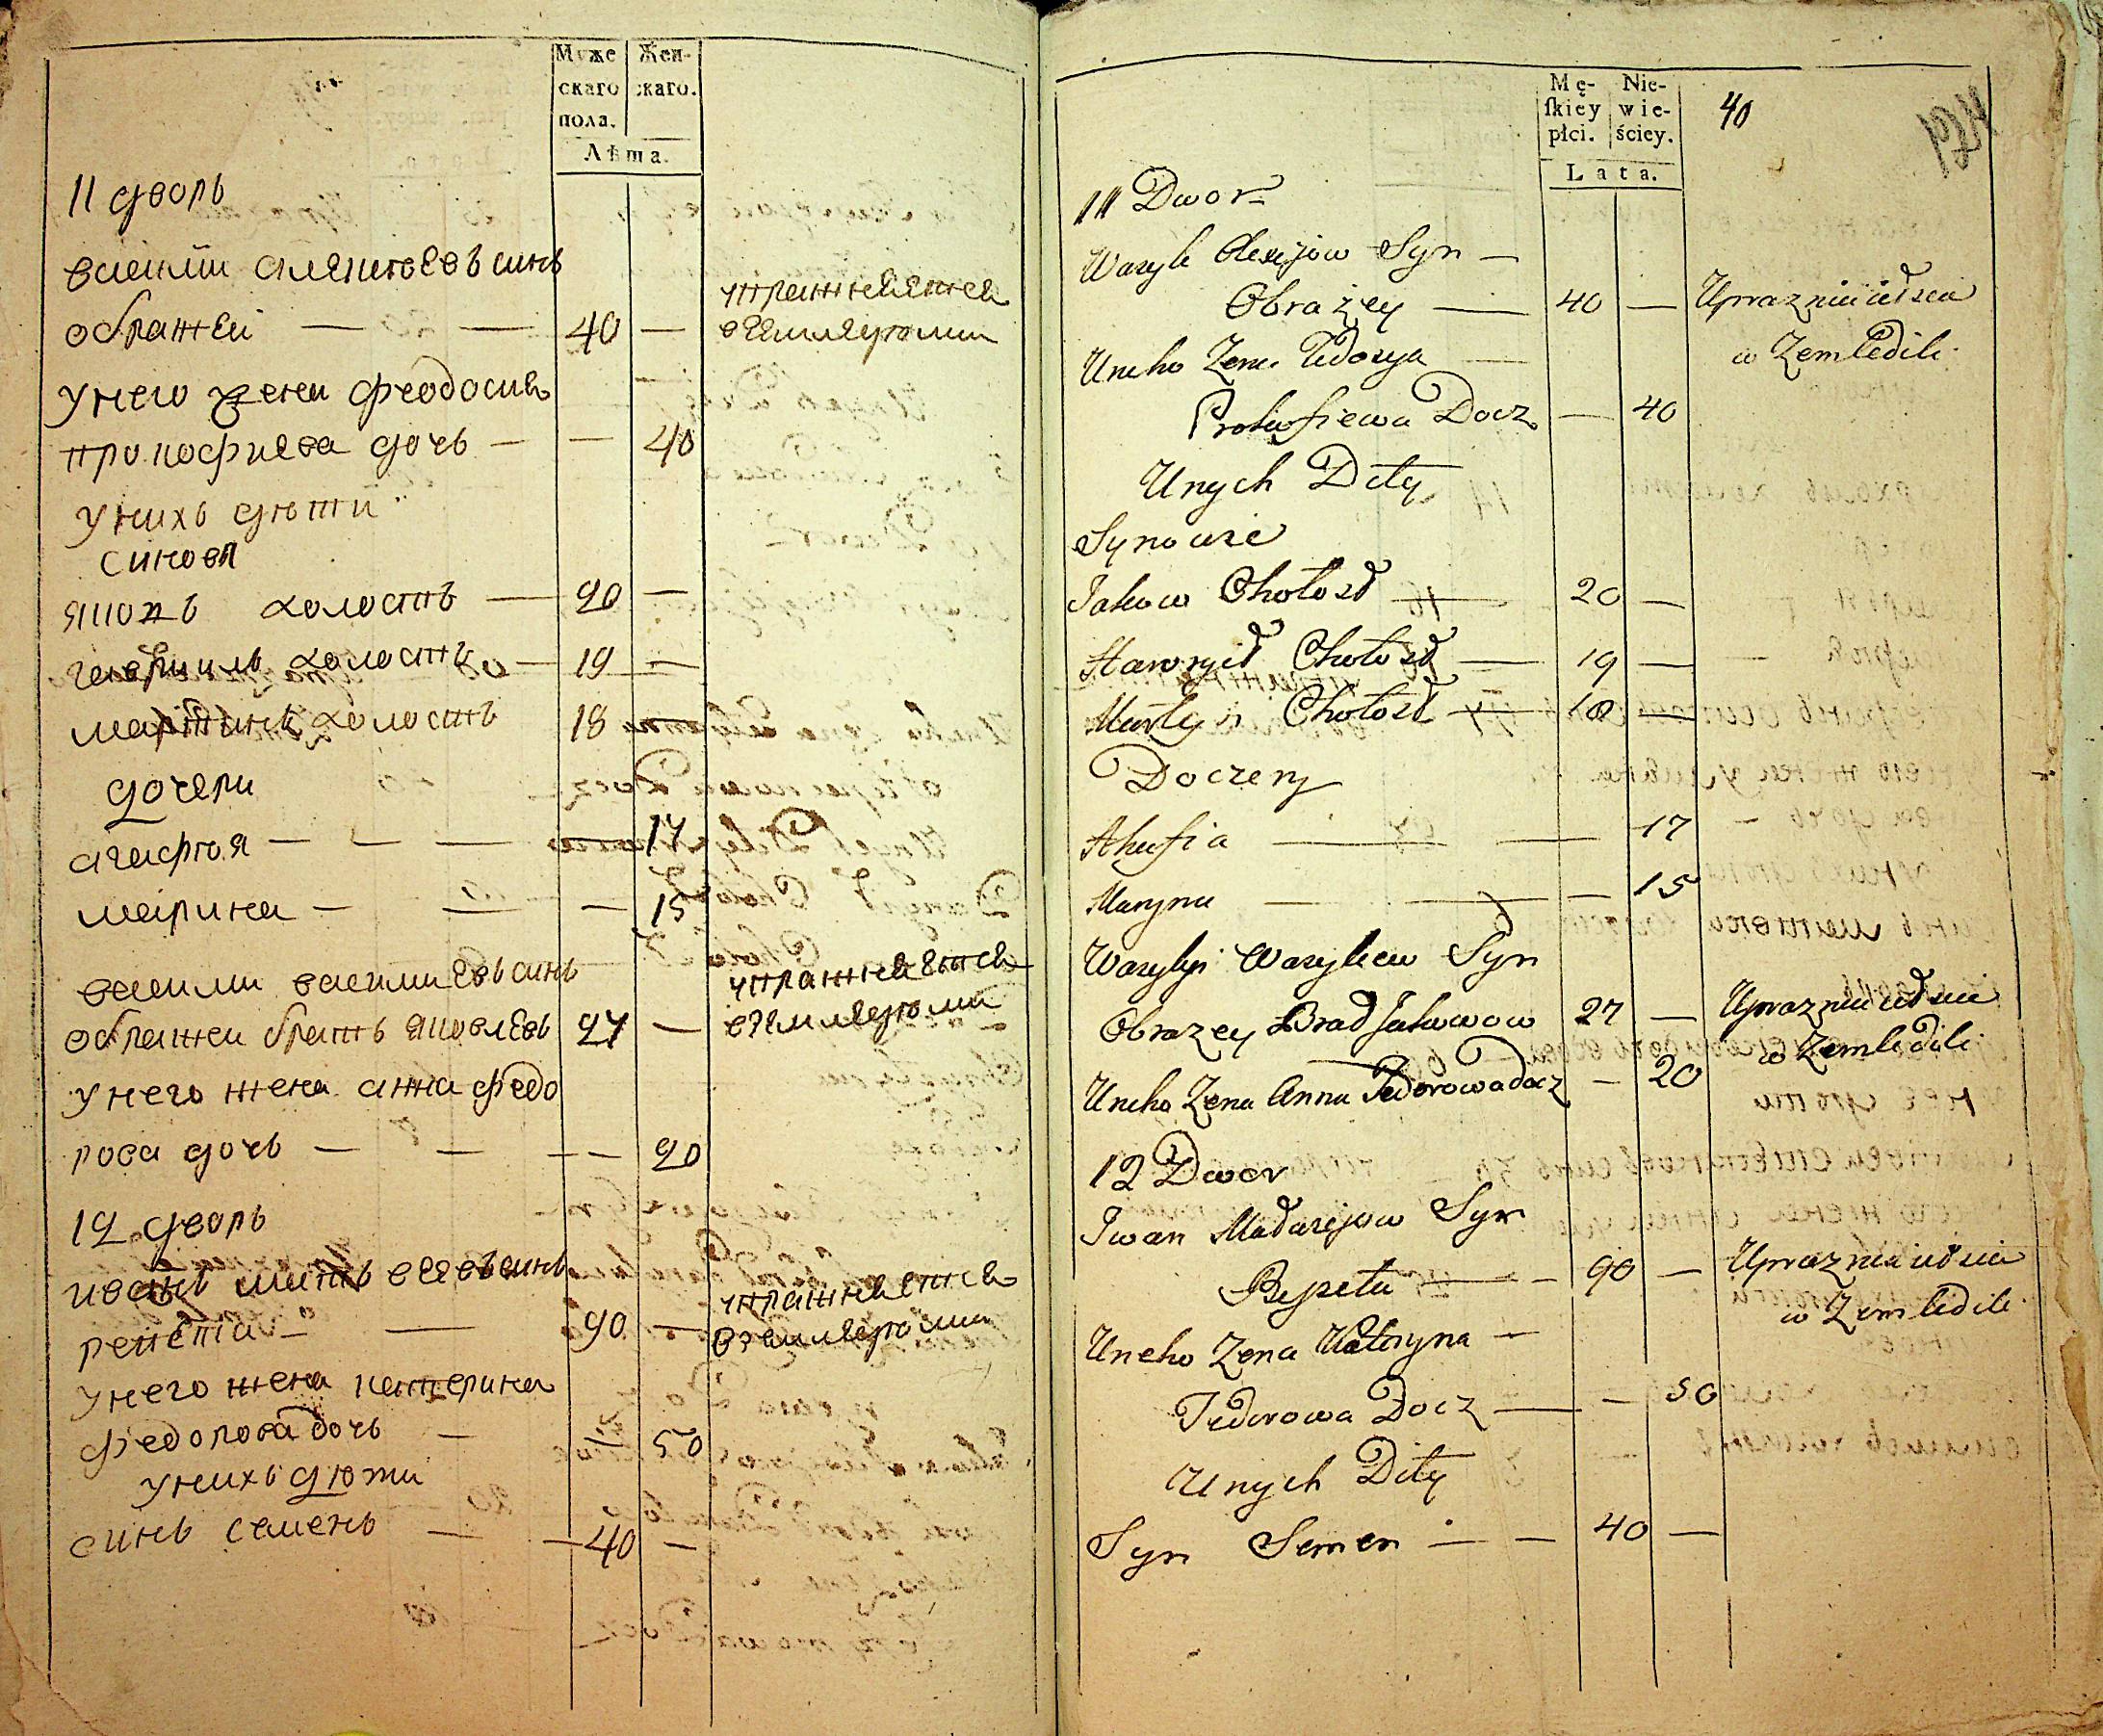 Муже Жен-
скаго скаго.
пола.
Лѣта.
11 дворъ
василій алексѣевъ синъ
ображей — — 40 — упражняется
в земледѣлии
у него жена феодосия
прокофиева дочь — — 40
у нихъ дѣти
синовя
яковъ холостъ — 20 —
гавриилъ холостъ — 19 —
мартинъ холостъ 18 —
дочери
агафия — — — 17
марина — — — 15
васили василиевъ синъ упражняется
ображеи братъ яковлевъ 27 — в земледѣлии
у него жена анна федо
рова дочь — — — — 20
12 дворъ
иванъ матвеевъ синъ
репета — — 90 — упражняется
в земледѣлии
у него жена катерина
федорова дочь — — 50
у нихъ дѣти
синъ семенъ — — 40 —
Mę- Nie-
ſkiey wie-
płci. ściey.
40
Lata.
11 Dwor
Wasyle Olexijow Syn —
Obrażey — 40 — Uprazniaiedsia
w Zemledili
Uneho Zena Tedosya —
Prokofiewa Docz — 40
Unych Dity
Synowie
Jakow Chołosd — 20 —
Hawryił Chołosd — 19 —
Martyn Chołosd — 18 —
Doczery
Ahafia — — 17
Maryna — — — 15
Wasylyi Wasyliew Syn
Obrazey Brad Jakowow 27 — Uprazniaiedsia
w Zemledili
Uneho Zena Anna Fedorowa docz — 20
12 Dwor
Iwan Madwiejow Syn
Repeta — — 90 — Uprazniaiedsia
w Zemledili
Uneho Zena Katryna —
Fedorowa Docz — — 50
Unych Dity
Syn Semen — — 40 —